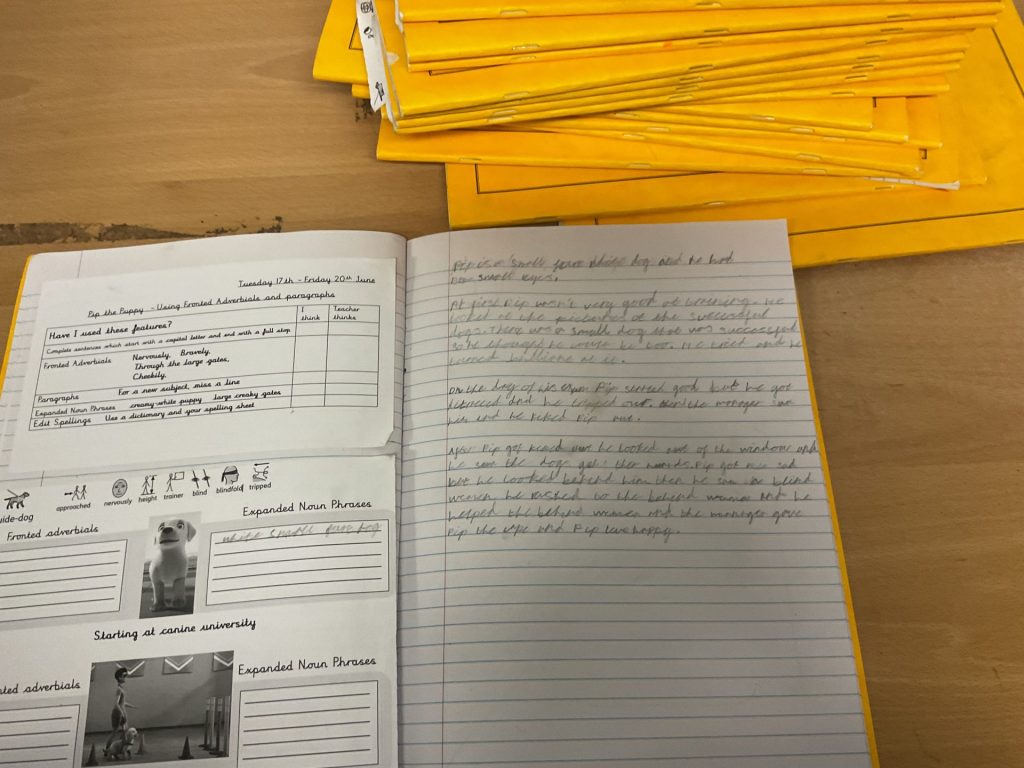 Tuesday 17th - Friday 20th June
Pip the Puppy - Using Fronted Adverbials and paragraphs
Have I used these features?
I think
Teacher thinks
Complete sentences which start with a capital letter and end with a full stop
Fronted Adverbials
Nervously, Bravely,
Through the large gates,
Cheekily,
Paragraphs For a new subject, miss a line
Expanded Noun Phrases creamy-white puppy large creaky gates
Edit Spellings Use a dictionary and your spelling sheet
uide-dog
approached
nervously
height
trainer
blind
blindfold
tripped
Fronted adverbials
Expanded Noun Phrases
white small dog
Starting at canine university
nted adverbials
Expanded Noun Phrases
Pip is a small dog and he had
small eyes.
At first Pip wasn't very good at He
looked at the of the successful
dogs. There was a small dog that was successful
so he thought he be too. He tried and he
at it.
On the day of his Pip good but he got
and he tripped out. the
and he Pip out.
After Pip got out he looked out of the window and
he saw the dogs get ther Pip got sad
but he looked behind him then he saw a blind
women he to the women and he
helped the women and the gave
Pip the and Pip happy.